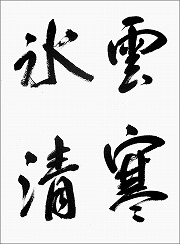 雲寒
氷清